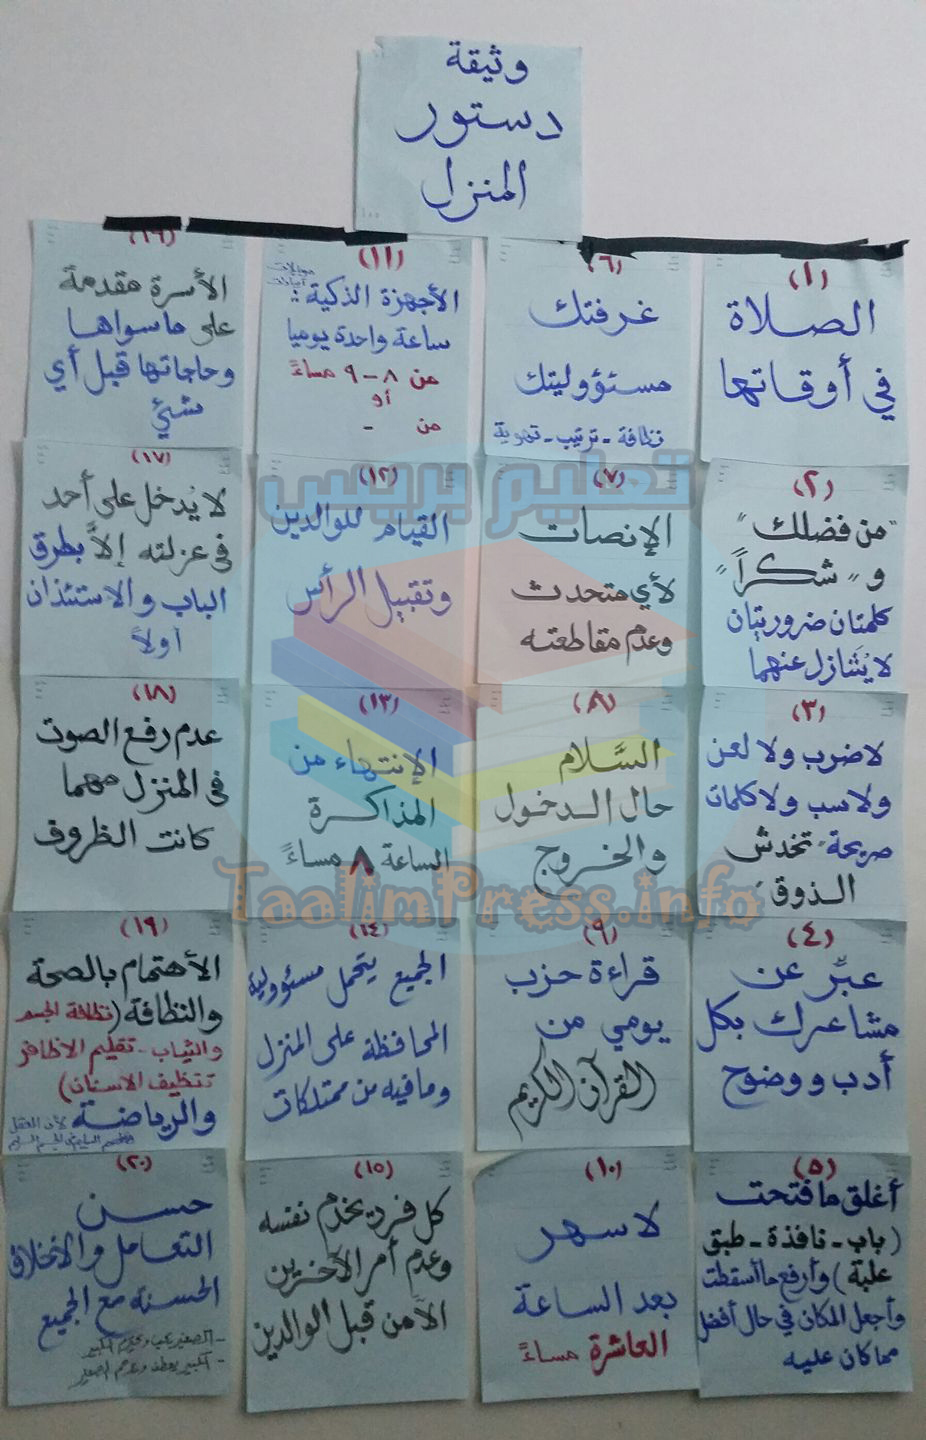 وثيقة
دستور
المنزل
(١)
الصلاة
في أوقاتها
(٢)
"من فضلك"
و "شكراً"
كلمتان ضروريتان
لا يُتنازل عنهما
(٣)
لا ضرب ولا لعن
ولا سب ولا كلمات
صريحة "تخدش
الذوق"
(٤)
عبِّر عن
مشاعرك بكل
أدب ووضوح
(٥)
أغلق ما فتحت
(باب - نافذة - طبق
علبة) وأرفع ما أسقطت
وأجعل المكان في حال أفضل
مما كان عليه
(٦)
غرفتك
مسئووليتك
نظافة - ترتيب - تهوية
(٧)
الإنصات
لأي متحدث
وعدم مقاطعته
(٨)
السَّلام
حال الدخول
والخروج
(٩)
قراءة حزب
يومي من
القرآن الكريم
(١٠)
لا سهر
بعد الساعة
العاشرة مساءً
(١١)
موبايلات
الأجهزة الذكية:
ساعة واحدة يوميا
من ٨ - ٩ مساءً
أو
من -
(١٢)
القيام للوالدين
وتقبيل الرأس
(١٣)
الإنتهاء من
المذاكرة
الساعة ٨ مساءً
(١٤)
الجميع يتحمل مسئوولية
المحافظة على المنزل
وما فيه من ممتلكات
(١٥)
كل فرد يخدم نفسه
وعدم أمر الآخرين
الاّ من قبل الوالدين
(١٦)
الأسرة مقدمة
على ما سواها
وحاجاتها قبل أي
شئ
(١٧)
لا يُدخل على أحد
في عزلته إلاَّ بطرق
الباب والاستئذان
أولاً
(١٨)
عدم رفع الصوت
في المنزل مهما
كانت الظروف
(١٩)
الأهتمام بالصحة
والنظافة (نظافة الجسم
والثياب - تقليم الاظافر
تنظيف الاسنان)
والرياضة لأن العقل
السليم في الجسم السليم
(٢٠)
حسن
التعامل والاخلاق
الحسنة مع الجميع
- الصغير يحب ويحترم الكبير
- الكبير يعطف ويرحم الصغير
تعليم بريس
TaalimPress.info